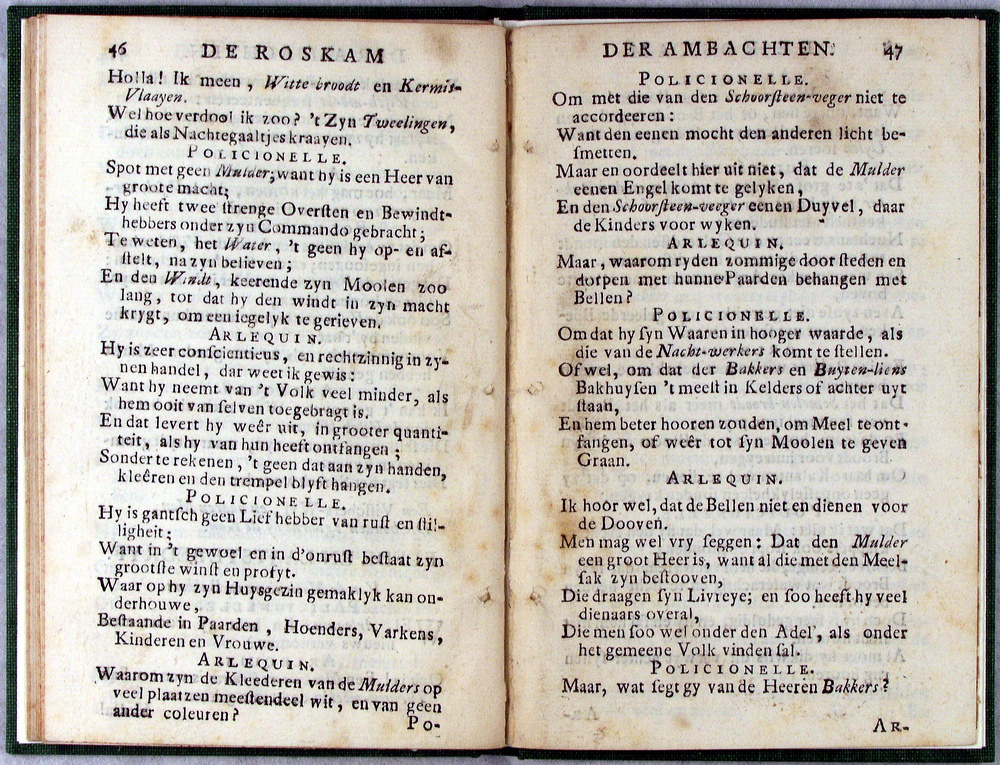 46 DE ROSKAM
Holla! Ik meen, Witte broodt en Kermis-
Vlaayen.
Wel hoe verdool ik zoo? 't Zyn Tweelingen,
die als Nachtegaaltjes kraayen.
POLICIONELLE.
Spot met geen Mulder; want hy is een Heer van
groote macht;
Hy heeft twee ſtrenge Overſten en Bewindt-
hebbers onder zyn Commando gebracht;
Te weten, het Water, 't geen hy op- en af-
ſtelt, na zyn believen;
En den Windt, keerende zyn Moolen zoo
lang, tot dat hy den windt in zyn macht
krygt, om een iegelyk te gerieven.
ARLEQUIN.
Hy is zeer conſcientieus, en rechtzinnig in zy-
nen handel, dar weet ik gewis:
Want hy neemt van 't Volk veel minder, als
hem ooit van ſelven toegebragt is.
En dat levert hy weêr uit, in grooter quanti-
teit, als hy van hun heeft ontfangen;
Sonder te rekenen, 't geen dat aan zyn handen,
kleêren en den trempel blyft hangen.
POLICIONELLE.
Hy is gantſch geen Lief hebber van ruſt en ſtil-
ligheit:
Want in 't gewoel en in d'onruſt beſtaat zyn
grootſte winſt en profyt.
Waar op hy zyn Huysgezin gemaklyk kan on-
derhouwe,
Beſtaande in Paarden, Hoenders, Varkens,
Kinderen en Vrouwe.
ARLEQUIN.
Waarom zyn de Kleederen van de Mulders op
veel plaatzen meeſtendeel wit, en van geen
ander coleuren?
Po-
DER AMBACHTEN. 47
POLICIONELLE.
Om met die van den Schoorſteen-veger niet te
accordeeren:
Want den eenen mocht den anderen licht be-
ſmetten.
Maar en oordeelt hier uit niet, dat de Mulder
eenen Engel komt te gelyken,
En den Schoorſteen-veeger eenen Duyvel, daar
de Kinders voor wyken.
ARLEQUIN.
Maar, waarom ryden zommige door ſteden en
dorpen met hunne Paarden behangen met
Bellen?
POLICIONELLE.
Om dat hy ſyn Waaren in hooger waarde, als
die van de Nacht-werkers komt te ſtellen.
Of wel, om dat der Bakkers en Buyten-liens
Bakhuyſen 't meeſt in Kelders of achter uyt
ſtaan,
En hem beter hooren zouden, om Meel te ont-
fangen, of weêr tot ſyn Moolen te geven
Graan.
ARLEQUIN.
Ik hoor wel, dat de Bellen niet en dienen voor
de Dooven.
Men mag wel vry ſeggen: Dat den Mulder
een groot Heer is, want al die met den Meel-
ſak zyn beſtooven,
Die draagen ſyn Livreye; en ſoo heeft hy veel
dienaars overal,
Die men ſoo wel onder den Adel, als onder
het gemeene Volk vinden ſal.
POLICIONELLE.
Maar, wat ſegt gy van de Heeren Bakkers?
AR-